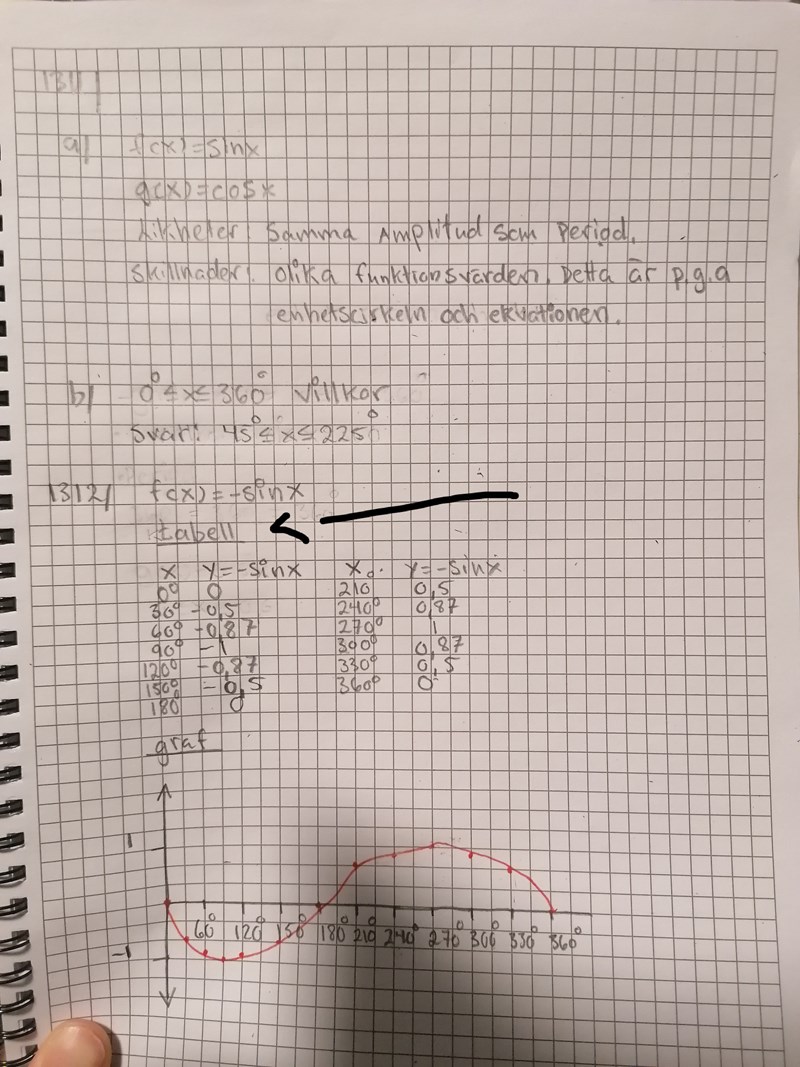 1311)
a) f(x)=sinx
g(x)=cosx
Likheter: Samma Amplitud som Period.
Skillnader: olika funktionsvärden, Detta är p.g.a
enhetscirkeln och ekvationen.
b) 0°≤x≤360° villkor
Svar: 45°≤x≤225°
1312) f(x)=-sinx
tabell
x y=-sinx x y=-sinx
0° 0 210 0,5
30° -0,5 240° 0,87
60° -0,87 270° 1
90° -1 300° 0,87
120° -0,87 330° 0,5
150° -0,5 360° 0
180 0
graf
1
60° 120° 150° 180° 210° 240° 270° 300° 330° 360°
-1